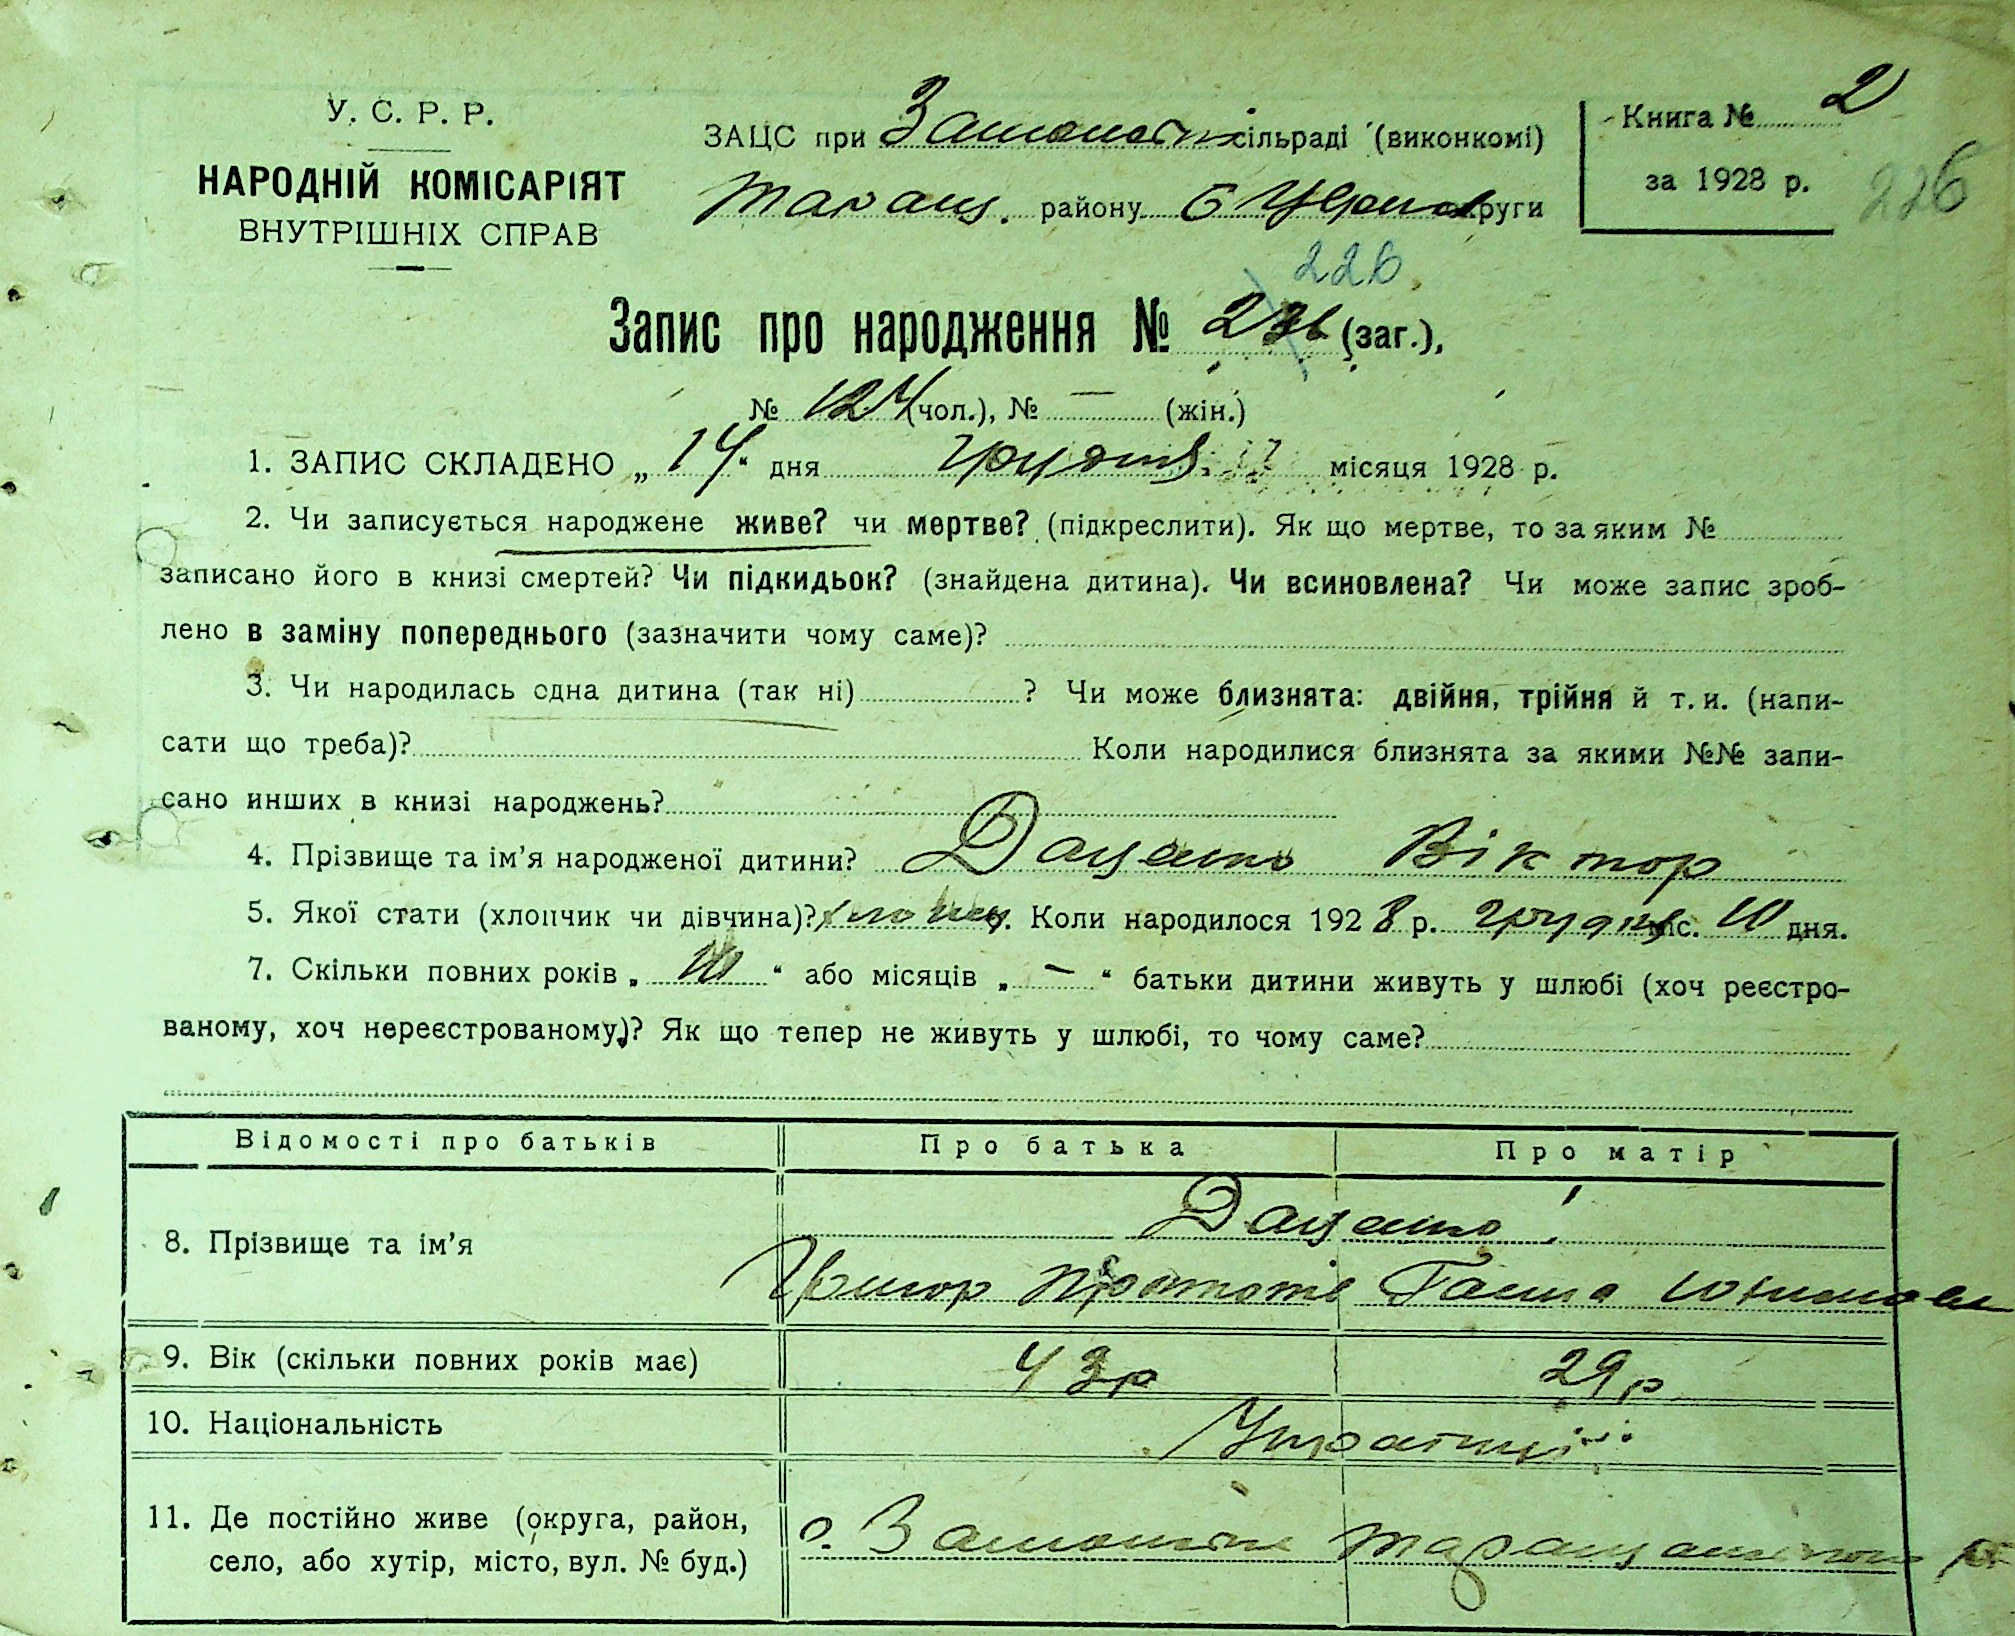 У. С. Р. Р.
НАРОДНІЙ КОМІСАРІЯТ
ВНУТРІШНІХ СПРАВ
ЗАЦС при сільраді (виконкомі)
Таращ. району Б Церк округи
Книга № 2
за 1928 р.
226
226
Запис про народження № (заг.),
№ 124 (чол.), № — (жін.)
1. ЗАПИС СКЛАДЕНО „ 14 “ дня Грудня місяця 1928 р.
2. Чи записується народжене живе? чи мертве? (підкреслити). Як що мертве, то за яким №
записано його в книзі смертей? Чи підкидьок? (знайдена дитина). Чи всиновлена? Чи може запис зроб-
лено в заміну попереднього (зазначити чому саме)?
3. Чи народилась одна дитина (так ні) ? Чи може близнята: двійня, трійня й т. и. (напи-
сати що треба)? Коли народилися близнята за якими №№ запи-
сано инших в книзі народжень?
4. Прізвище та ім'я народженої дитини? Даценко Віктор
5. Якої стати (хлопчик чи дівчина)? хлопец. Коли народилося 1928 р. грудня міс. 10 дня.
7. Скільки повних років „ 10 “ або місяців „ — “ батьки дитини живуть у шлюбі (хоч реєстро-
ваному, хоч нереєстрованому)? Як що тепер не живуть у шлюбі, то чому саме?
Відомості про батьків Про батька Про матір
8. Прізвище та ім'я Даценко
Григор Ганна
9. Вік (скільки повних років має) 43р 29р
10. Національність Українці
11. Де постійно живе (округа, район,
село, або хутір, місто, вул. № буд.)